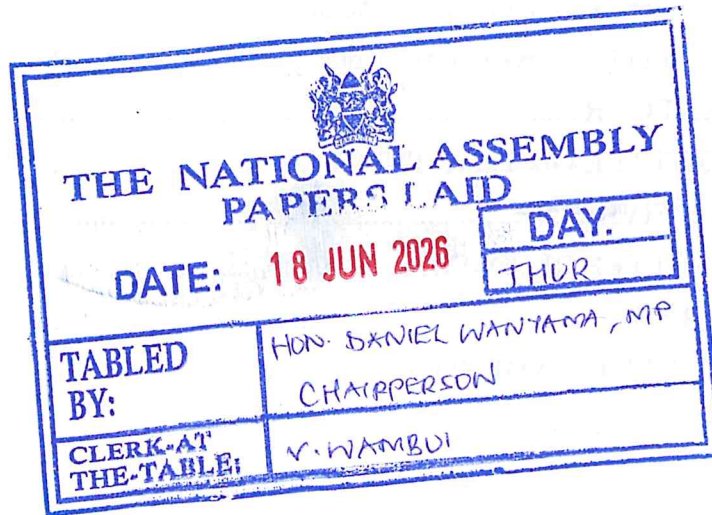 THE NATIONAL ASSEMBLY
PAPERS LAID
DATE: 18 JUN 2026
DAY.
THUR
TABLED BY:
HON. DANIEL WANYAMA, MP
CHAIRPERSON
CLERK-AT THE-TABLE:
V. WAMBUI